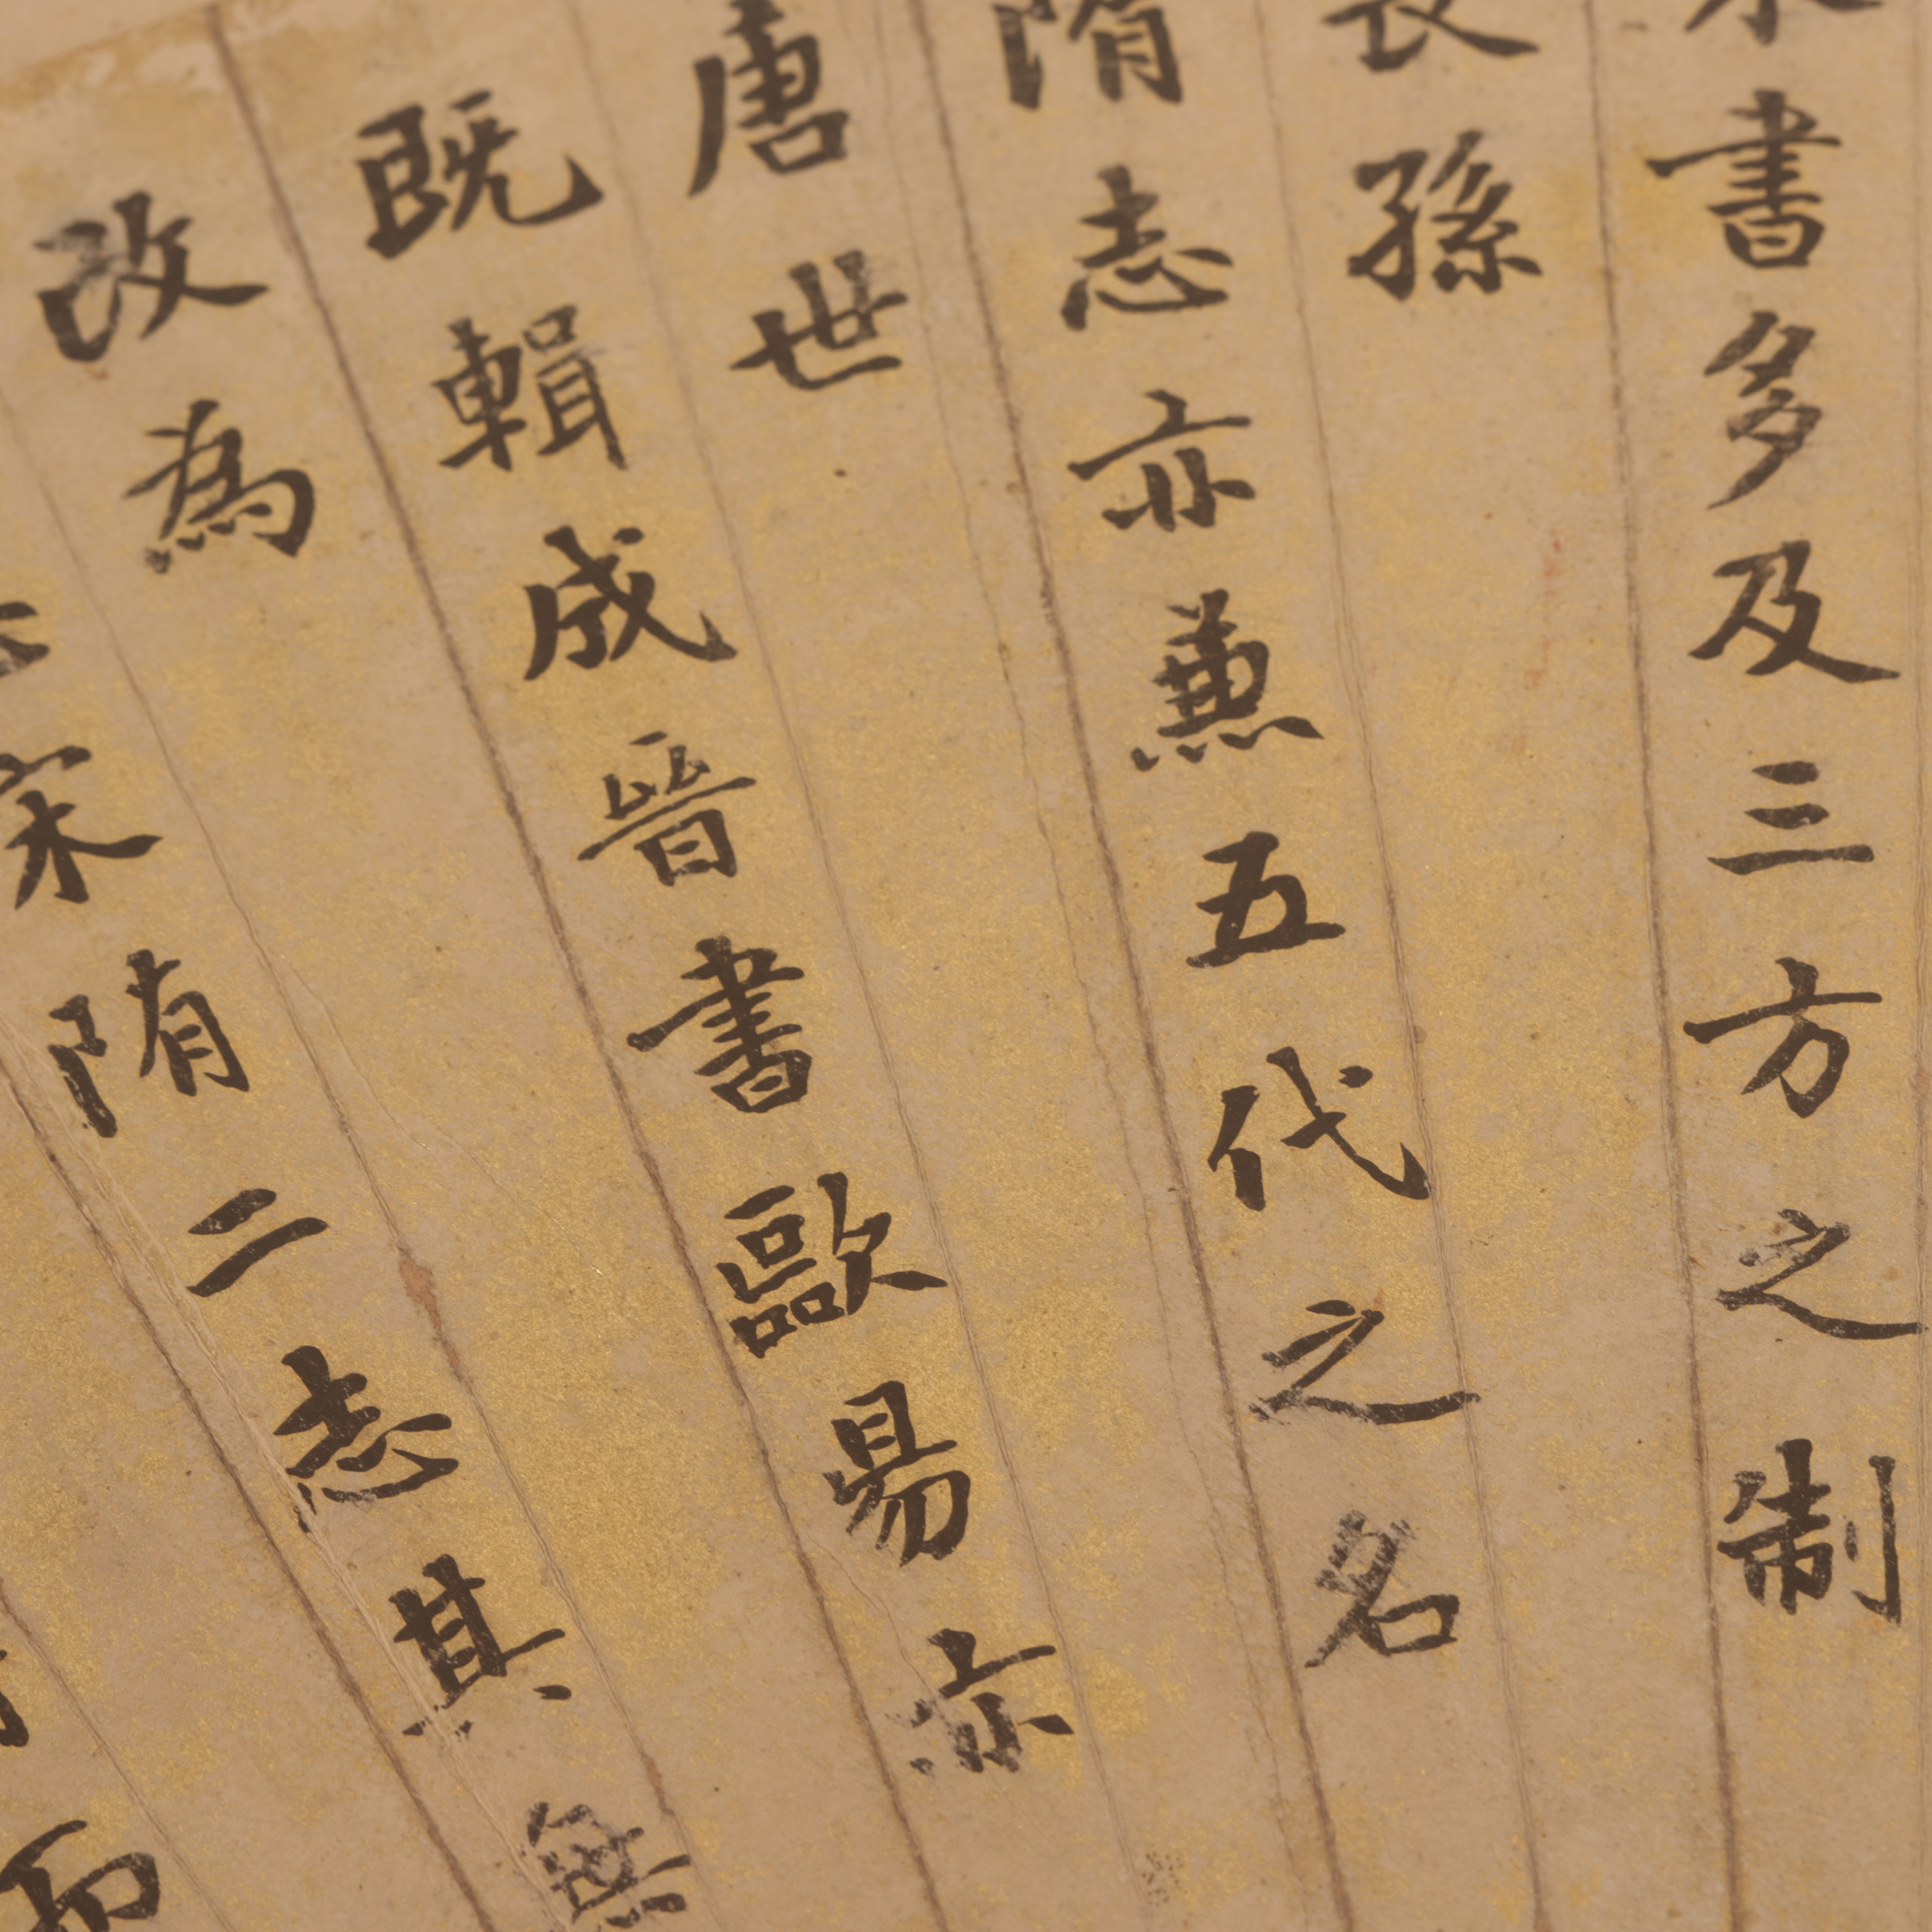 書多及三方之制
長孫
隋志亦兼五代之名
唐世
既輯成晉書歐易亦
改為
宋隋二志其無
而